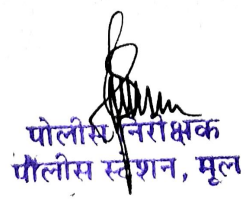 पोलीस निरीक्षक
पोलीस स्टेशन, मूल